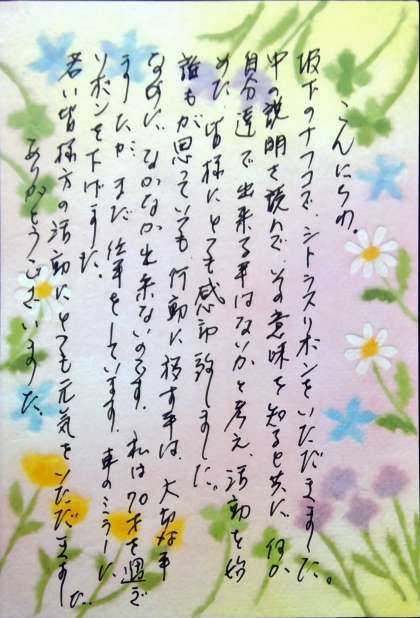 こんにちわ。
坂下のナフコで、シトラスリボンをいただきました。
中の説明を読んで、その意味を知ると共に、何か
自分達で出来る事はないかと考え、活動を始
めた、皆様にとても感動致しました。
誰もが思っていても、行動に移す事は、大切な事
なのに、なかなか出来ないのです。私は70才を過ぎ
ましたが、まだ仕事をしています。車のミラーに、
リボンを下げました。
若い皆様方の活動にとても元気をいただきました。
ありがとうございました。